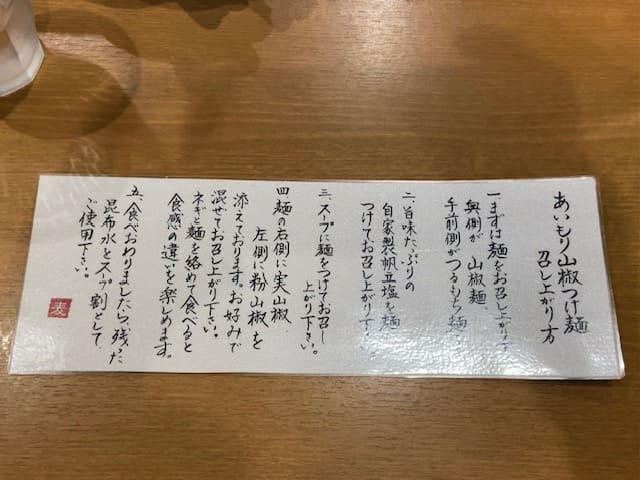 あいもり山椒つけ麺
召し上がり方
一、まずは麺をお召し上がり下
奥側が、山椒麺、
手前側がつるもち麺
二、旨味たっぷりの
自家製帆立塩を麺
つけてお召し上がり下さい。
三、スープに麺をつけてお召し
上がり下さい。
四、麺の右側に実山椒、
左側に粉山椒を
添えております。お好みで
混ぜてお召し上がり下さい。
ネギと麺を絡めて食べると
食感の違いを楽しめます。
五、食べおわりましたら、残った
昆布水をスープ割として、
ご使用下さい。
麦